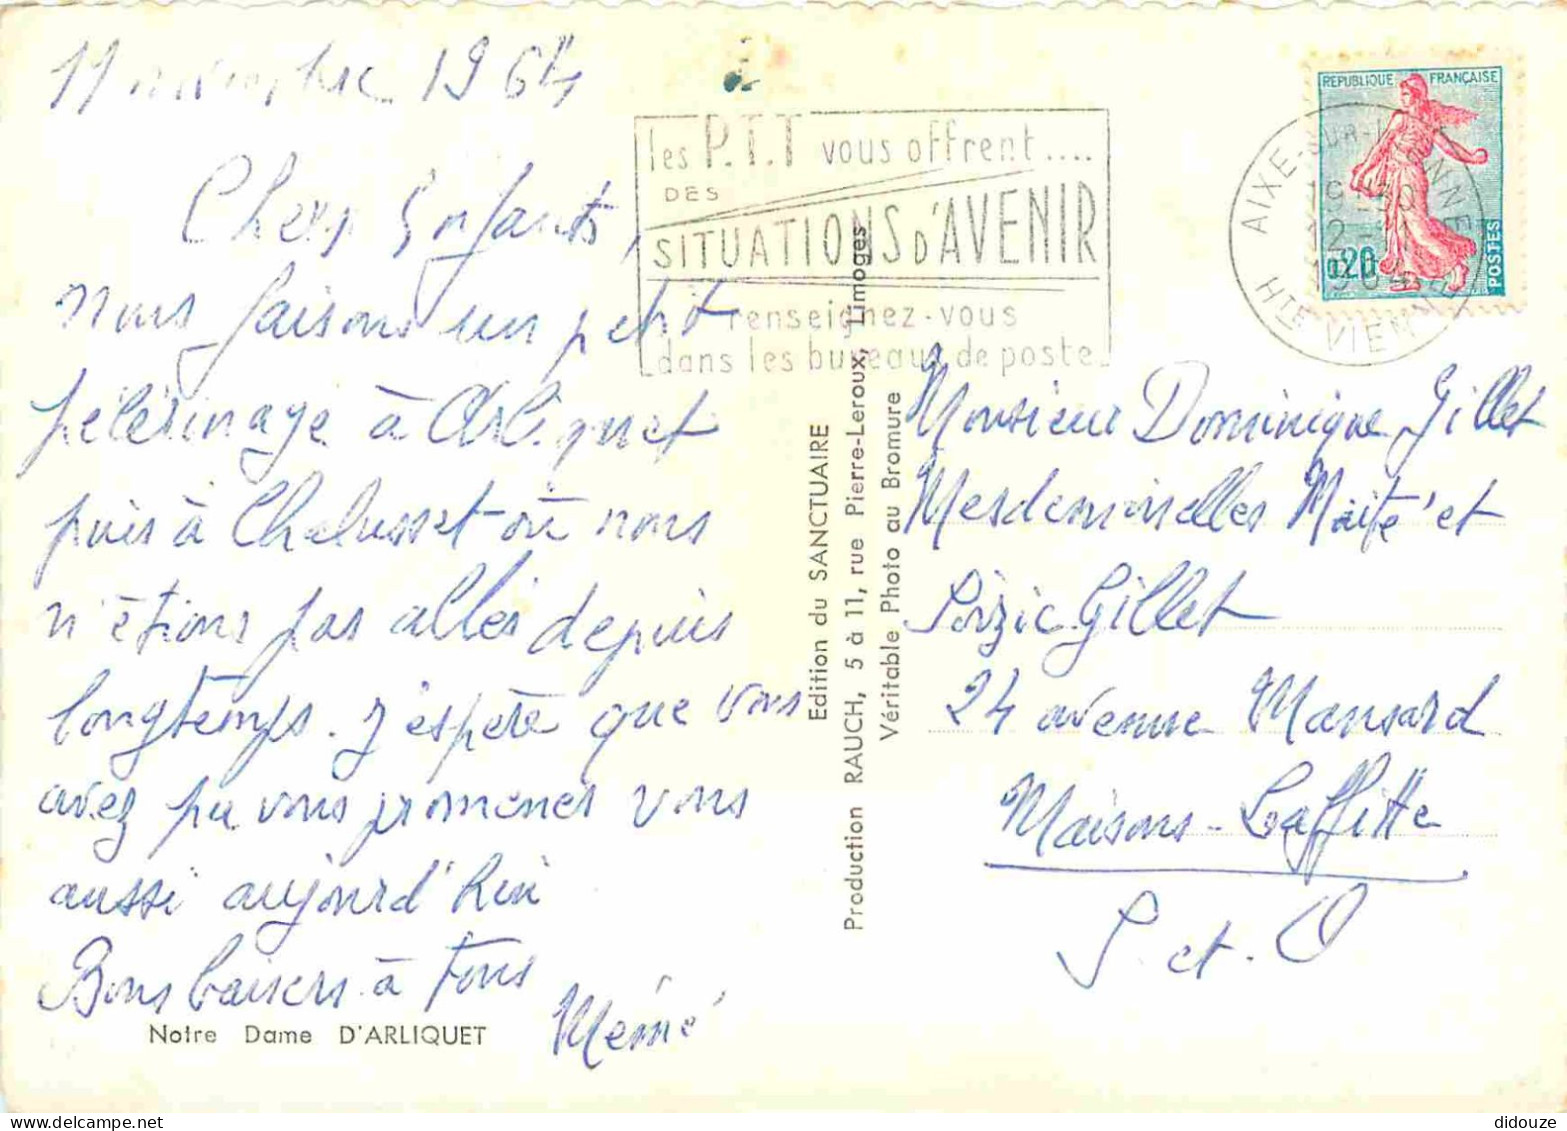 11 novembre 1964
Chers Enfants,
nous faisons un petit
pélérinage à Arliquet
puis à Chalusset où nous
n'étions pas allés depuis
longtemps. J'espère que vous
avez pu vous promener vous
aussi aujourd'hui
Bons baisers à tous
Mémé
Notre Dame D'ARLIQUET
les P.T.T vous offrent....
DES
SITUATIONS D'AVENIR
renseignez-vous
dans les bureaux de poste
Edition du SANCTUAIRE
Production RAUCH, 5 à 11, rue Pierre-Leroux, Limoges
Véritable Photo au Bromure
REPUBLIQUE FRANÇAISE
0,20
POSTES
AIXE-SUR-VIENNE
12-11
1964
HTE VIENNE
Monsieur Dominique Gillet
Mesdemoiselles Maïté et
Soizic Gillet
24 avenue Mansard
Maisons-Laffitte
S. et. O
didouze